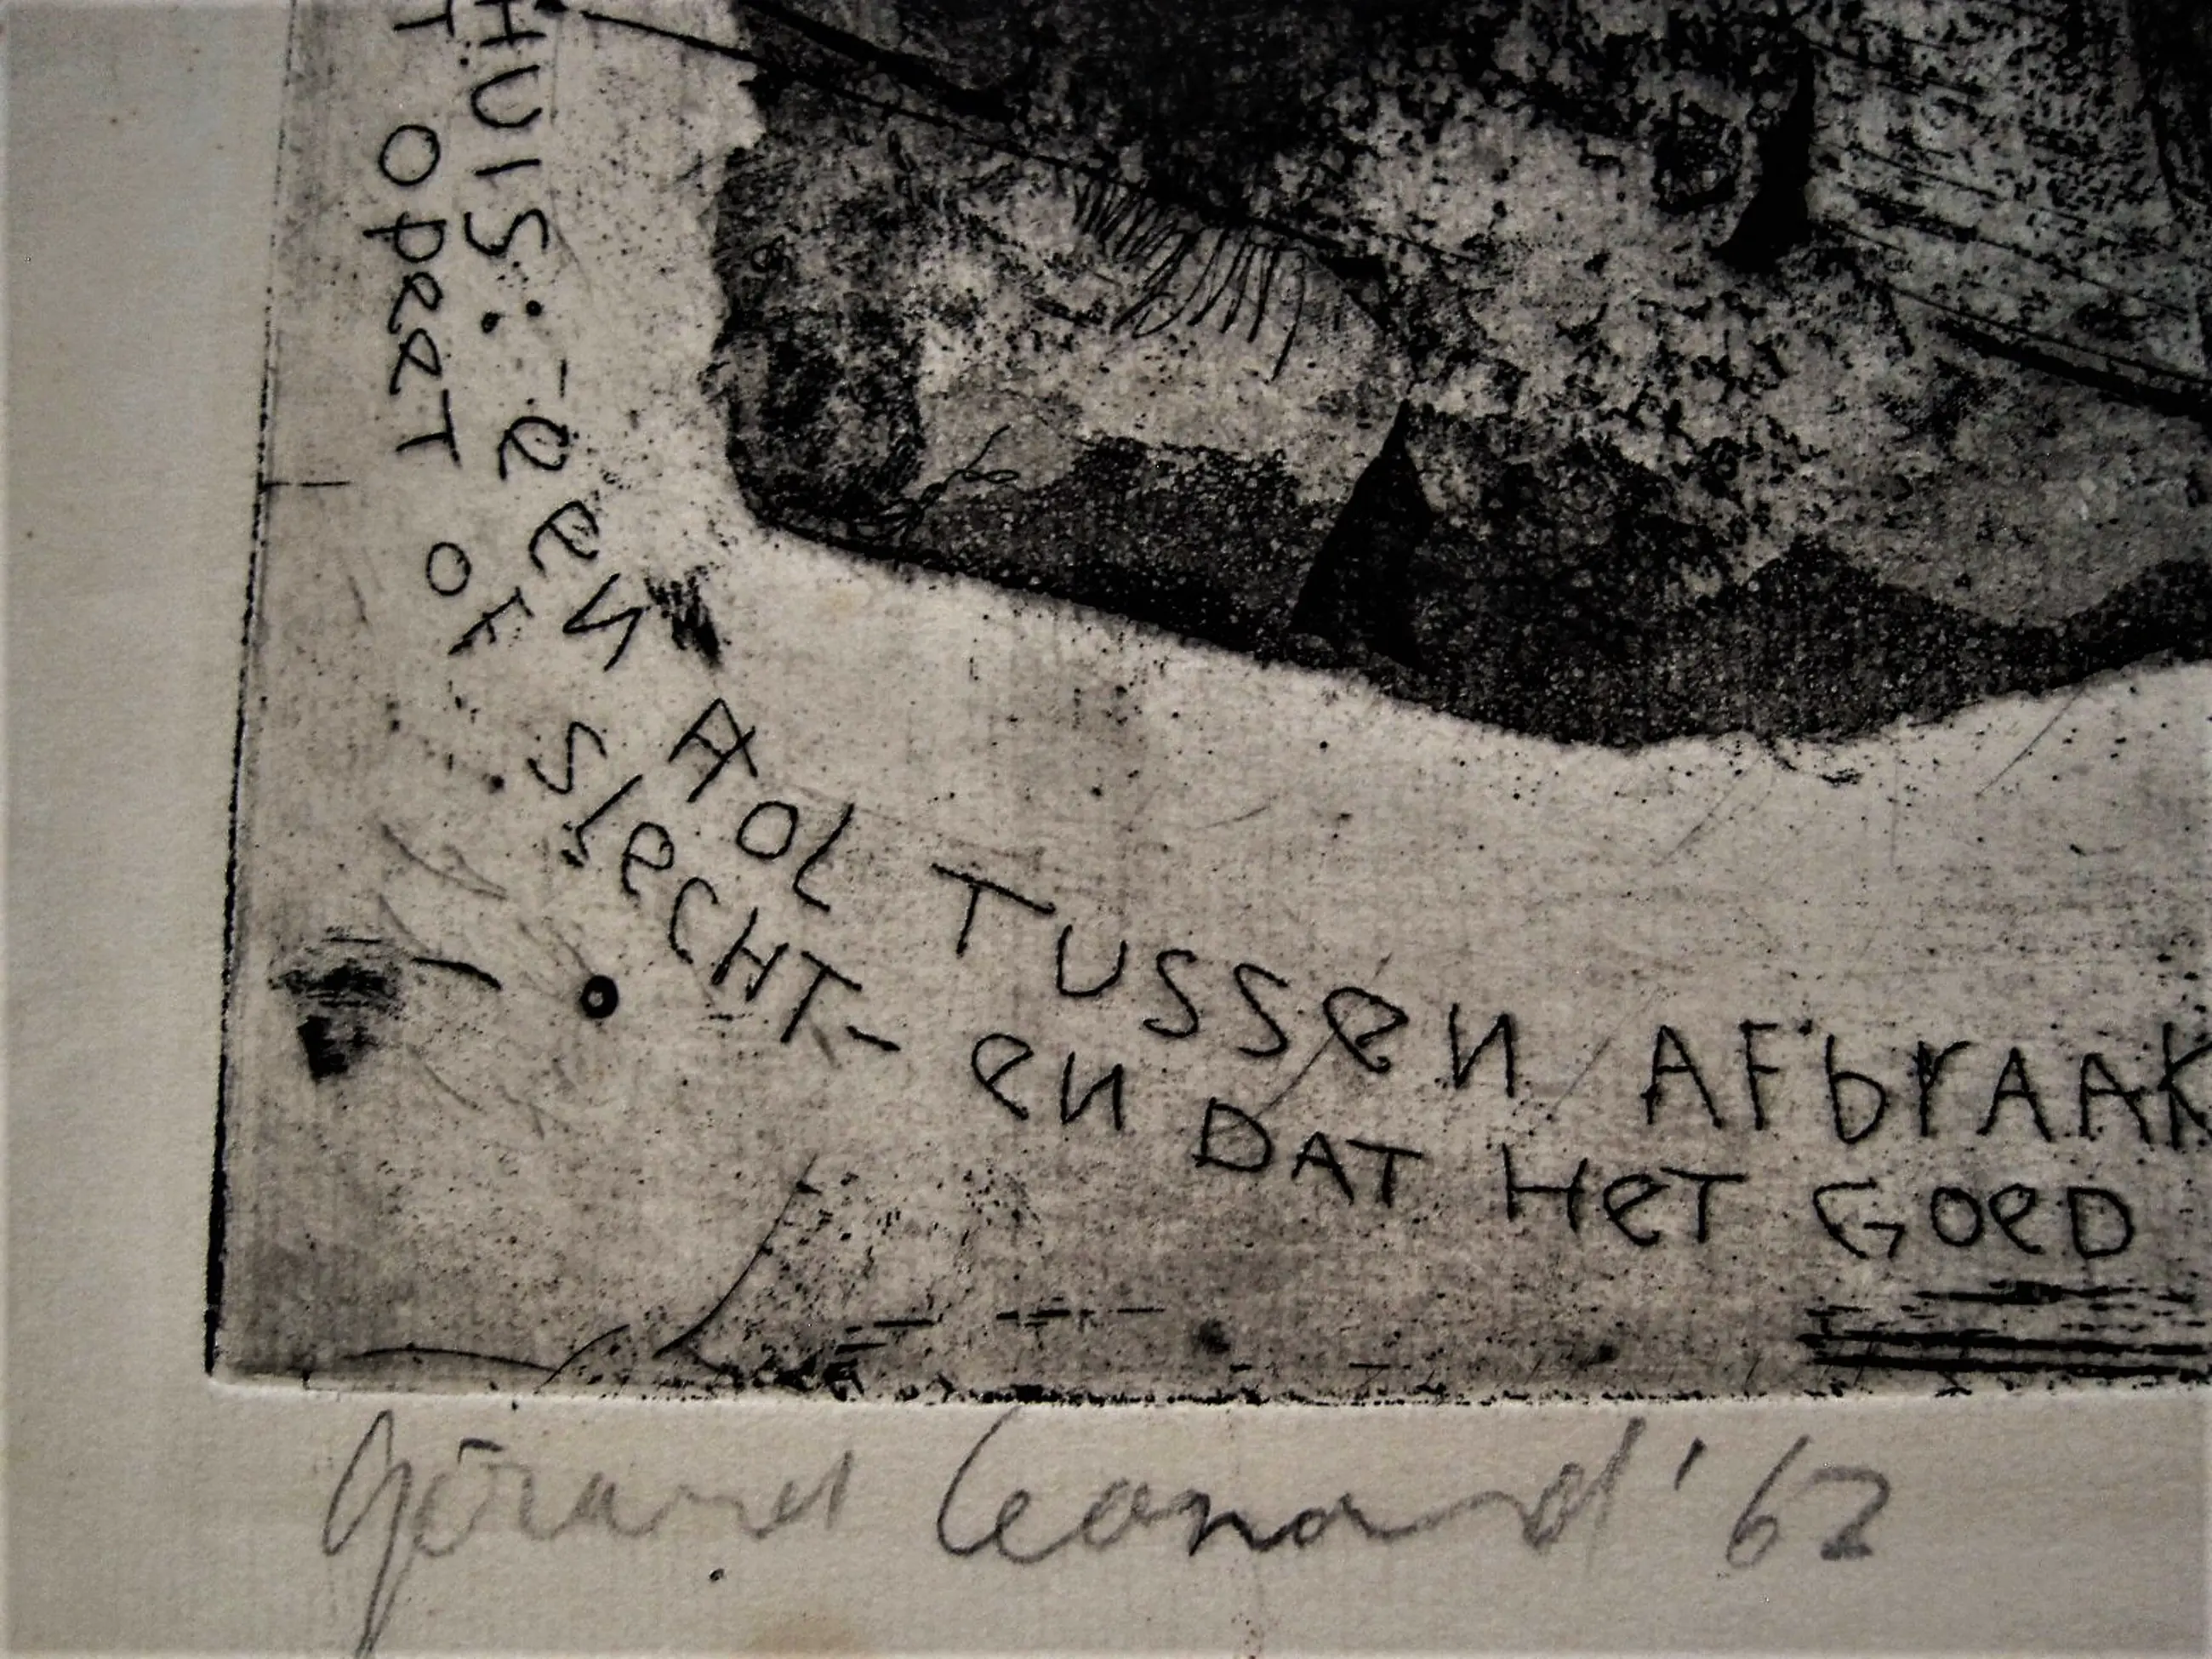 HUIS: - een HOL TUSSen AFbrAAK
T OpeeT OF SlecHT - en DAT HeT GOeD
Gérard Leonard '62